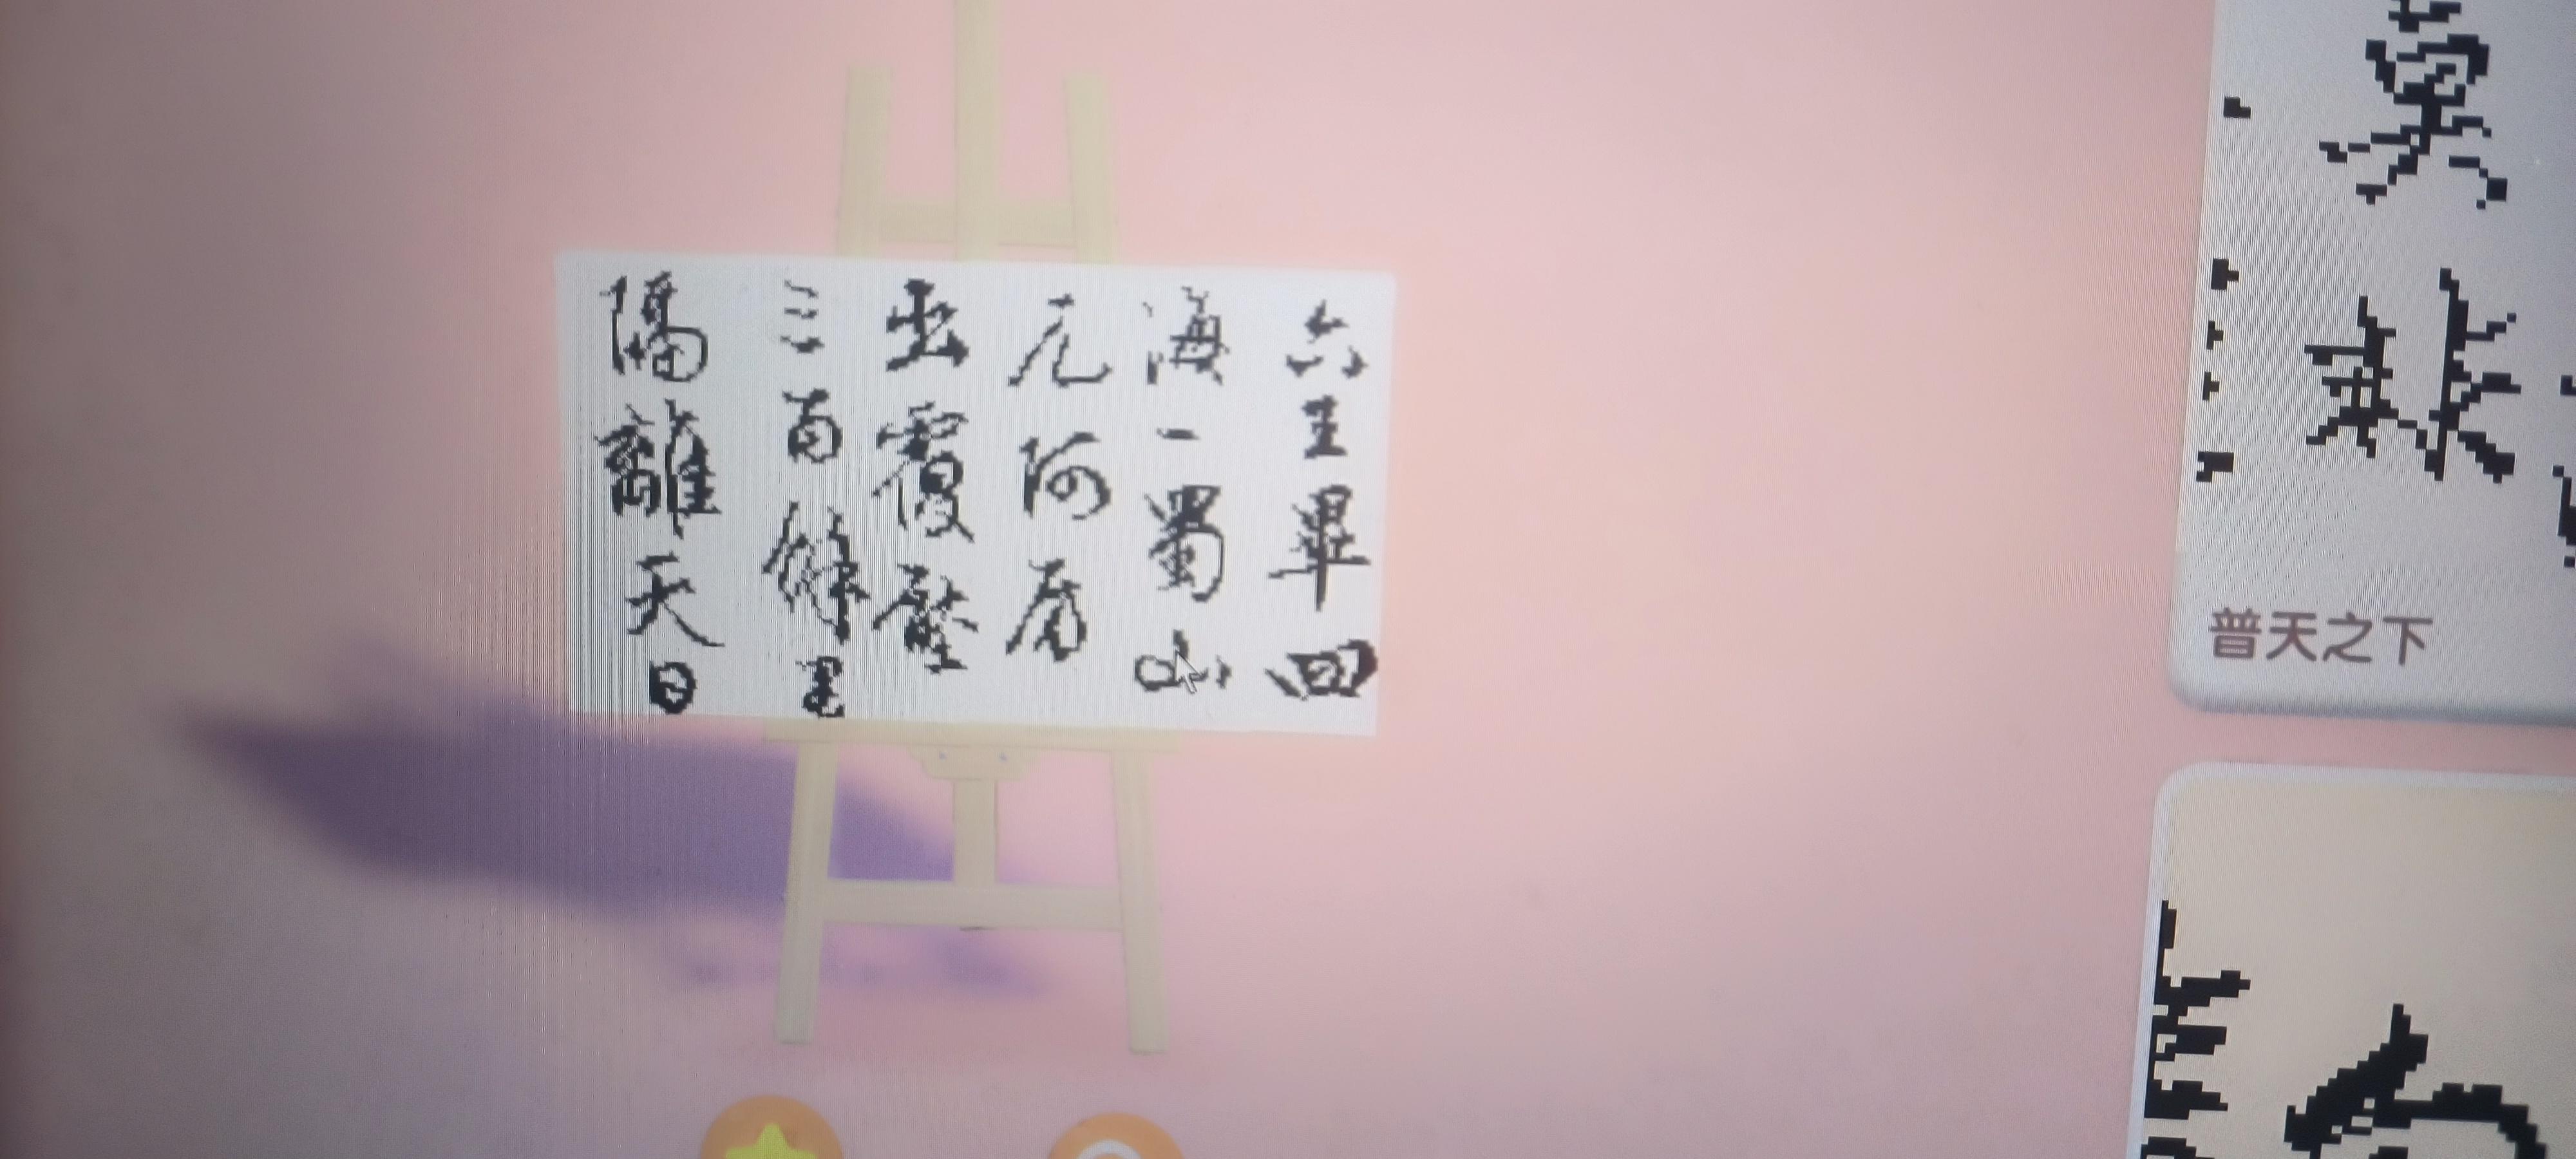 六王畢四
海一蜀山
兀阿房
出覆壓
三百餘里
隔離天日
普天之下